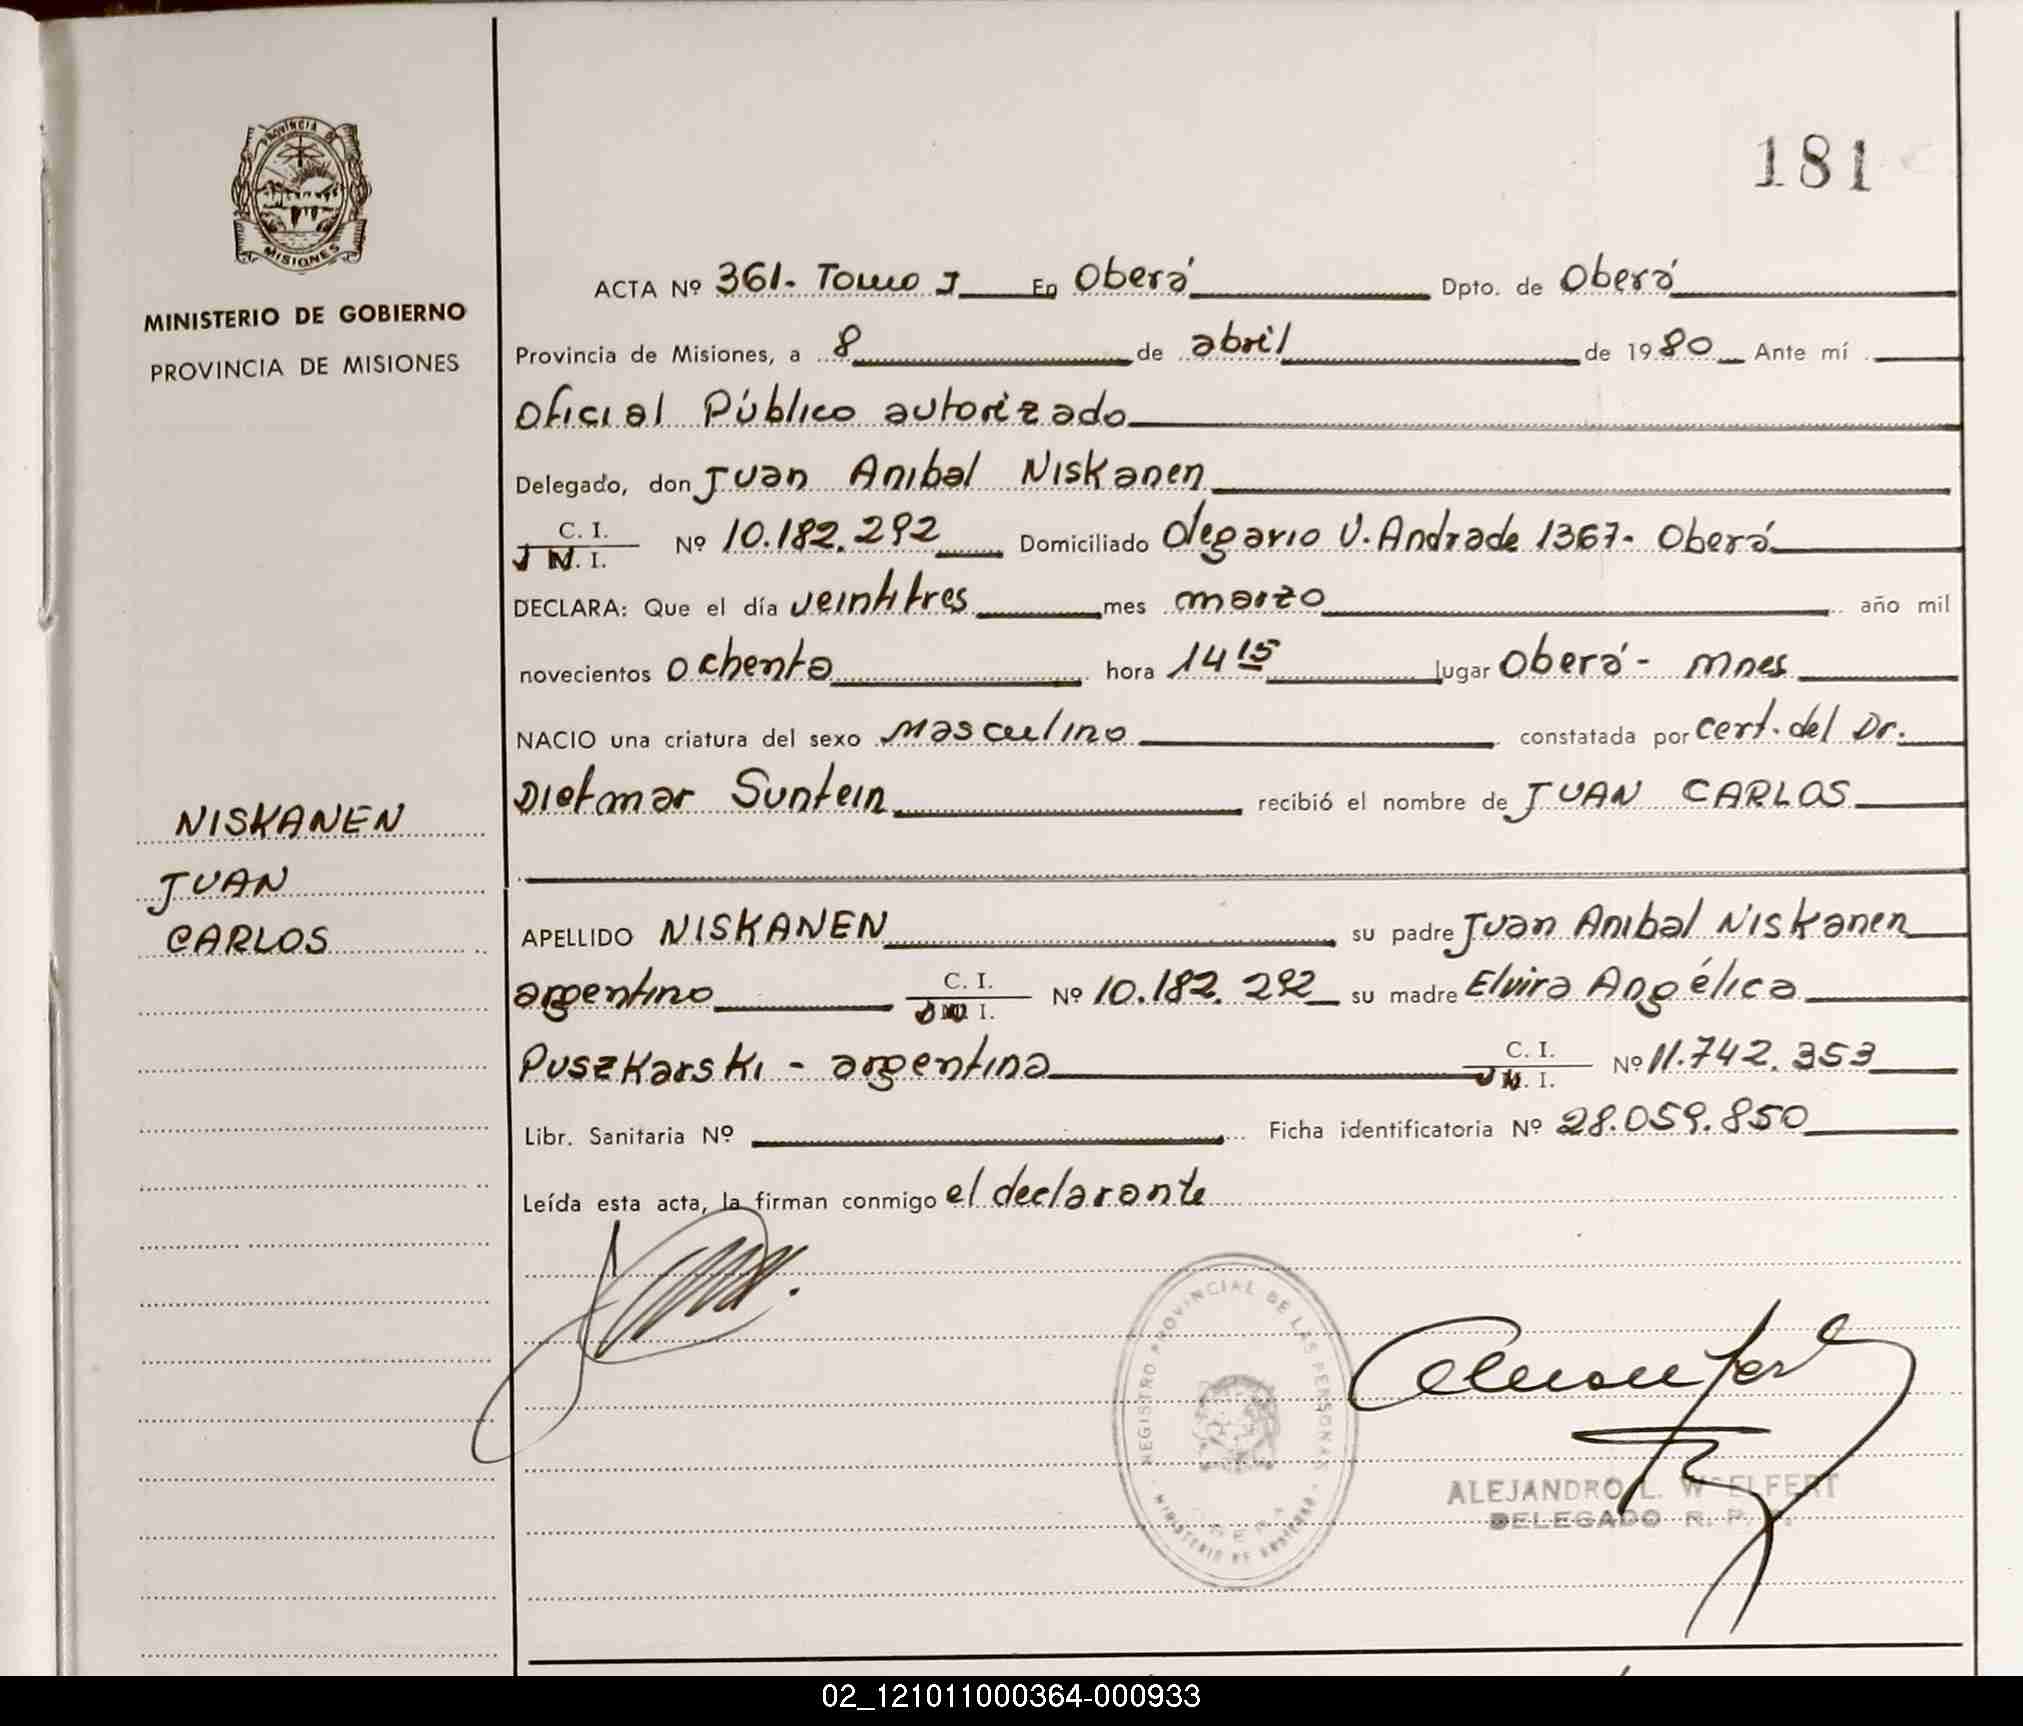 181
PROVINCIA DE
MISIONES
MINISTERIO DE GOBIERNO
PROVINCIA DE MISIONES
NISKANEN
JUAN
CARLOS
ACTA Nº 361. Tomo I En Oberá Dpto. de Oberá
Provincia de Misiones, a 8 de abril de 1980 Ante mí
Oficial Público autorizado
Delegado, don Juan Anibal Niskanen
C. I.
N. I. Nº 10.182.292 Domiciliado Olegario V. Andrade 1367- Oberá
DECLARA: Que el día veintitres mes marzo año mil
novecientos ochenta hora 14 15 lugar Oberá - Mnes
NACIO una criatura del sexo masculino constatada por cert. del Dr.
Dietmar Suntein recibió el nombre de JUAN CARLOS
APELLIDO NISKANEN su padre Juan Anibal Niskanen
argentino C. I. I. Nº 10.182.292 su madre Elvira Angélica
Puszkarski - argentina C. I. I. Nº 11.742.353
Libr. Sanitaria Nº Ficha identificatoria Nº 28.059.850
Leída esta acta, la firman conmigo el declarante
REGISTRO PROVINCIAL DE LAS PERSONAS
MINISTERIO DE GOBIERNO
ALEJANDRO L. WOELFERT
DELEGADO R. P.
02_121011000364-000933